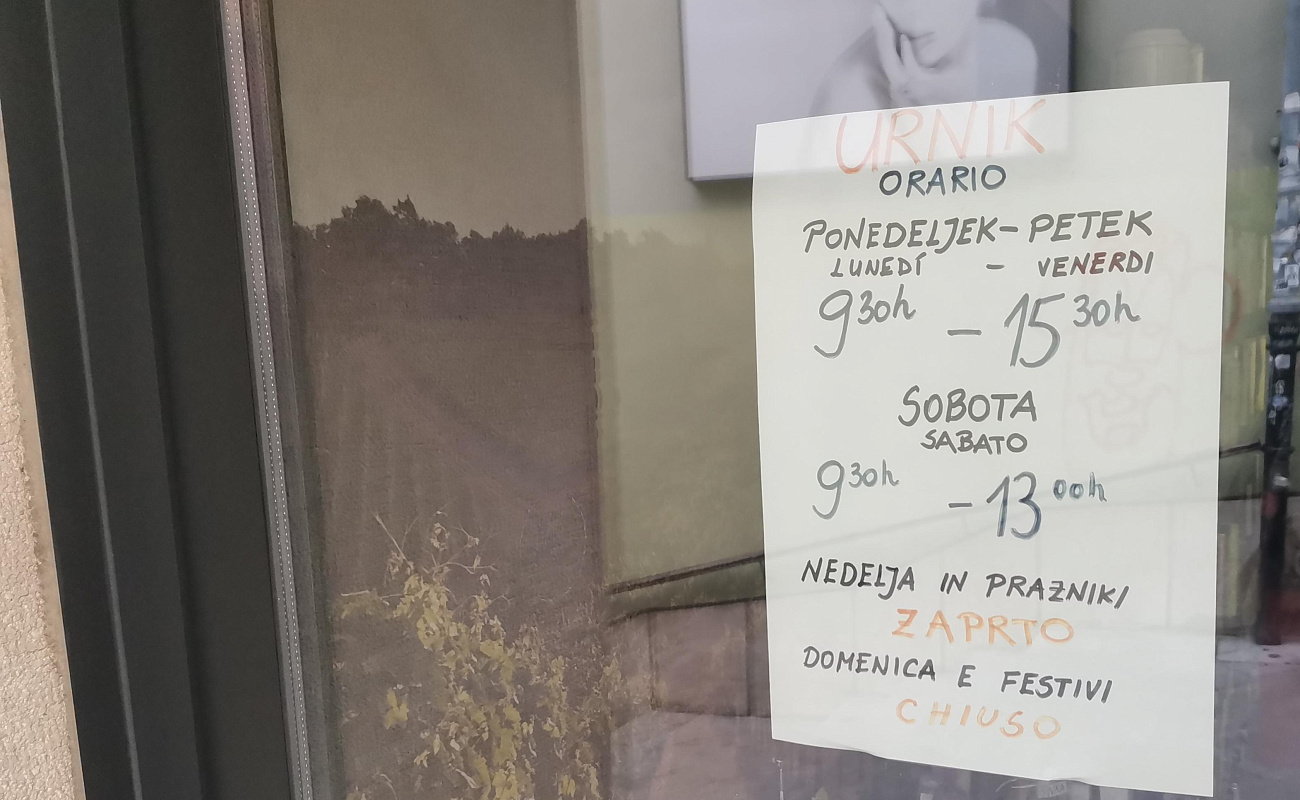 URNIK
ORARIO
PONEDELJEK - PETEK
LUNEDÍ - VENERDI
9 30h - 15 30h
SOBOTA
SABATO
9 30h - 13 00h
NEDELJA IN PRAZNIKI
ZAPRTO
DOMENICA E FESTIVI
CHIUSO